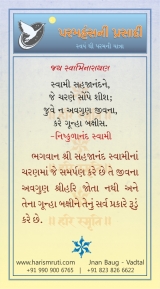 પરબ્રહ્મની પ્રસાદી
જય સ્વામિનારાયણ
સ્વામી સહજાનંદને,
જે ચરણે સોંપે શીશ;
જુવે ન અવગુણ જીવના,
કરે ગૂન્હા બક્ષીસ.
-નિષ્કુળાનંદ સ્વામી
ભગવાન શ્રી સહજાનંદ સ્વામીનાં
ચરણમાં જે સમર્પણ કરે છે તે જીવના
અવગુણ શ્રીહરિ જોતા નથી અને
તેના ગૂન્હા બક્ષીને તેનું સર્વ પ્રકારે રૂડું
કરે છે.
|| हरि स्मृति ||
www.harismruti.com
Jnan Baug - Vadtal
+91 990 900 6765 | +91 823 826 6622